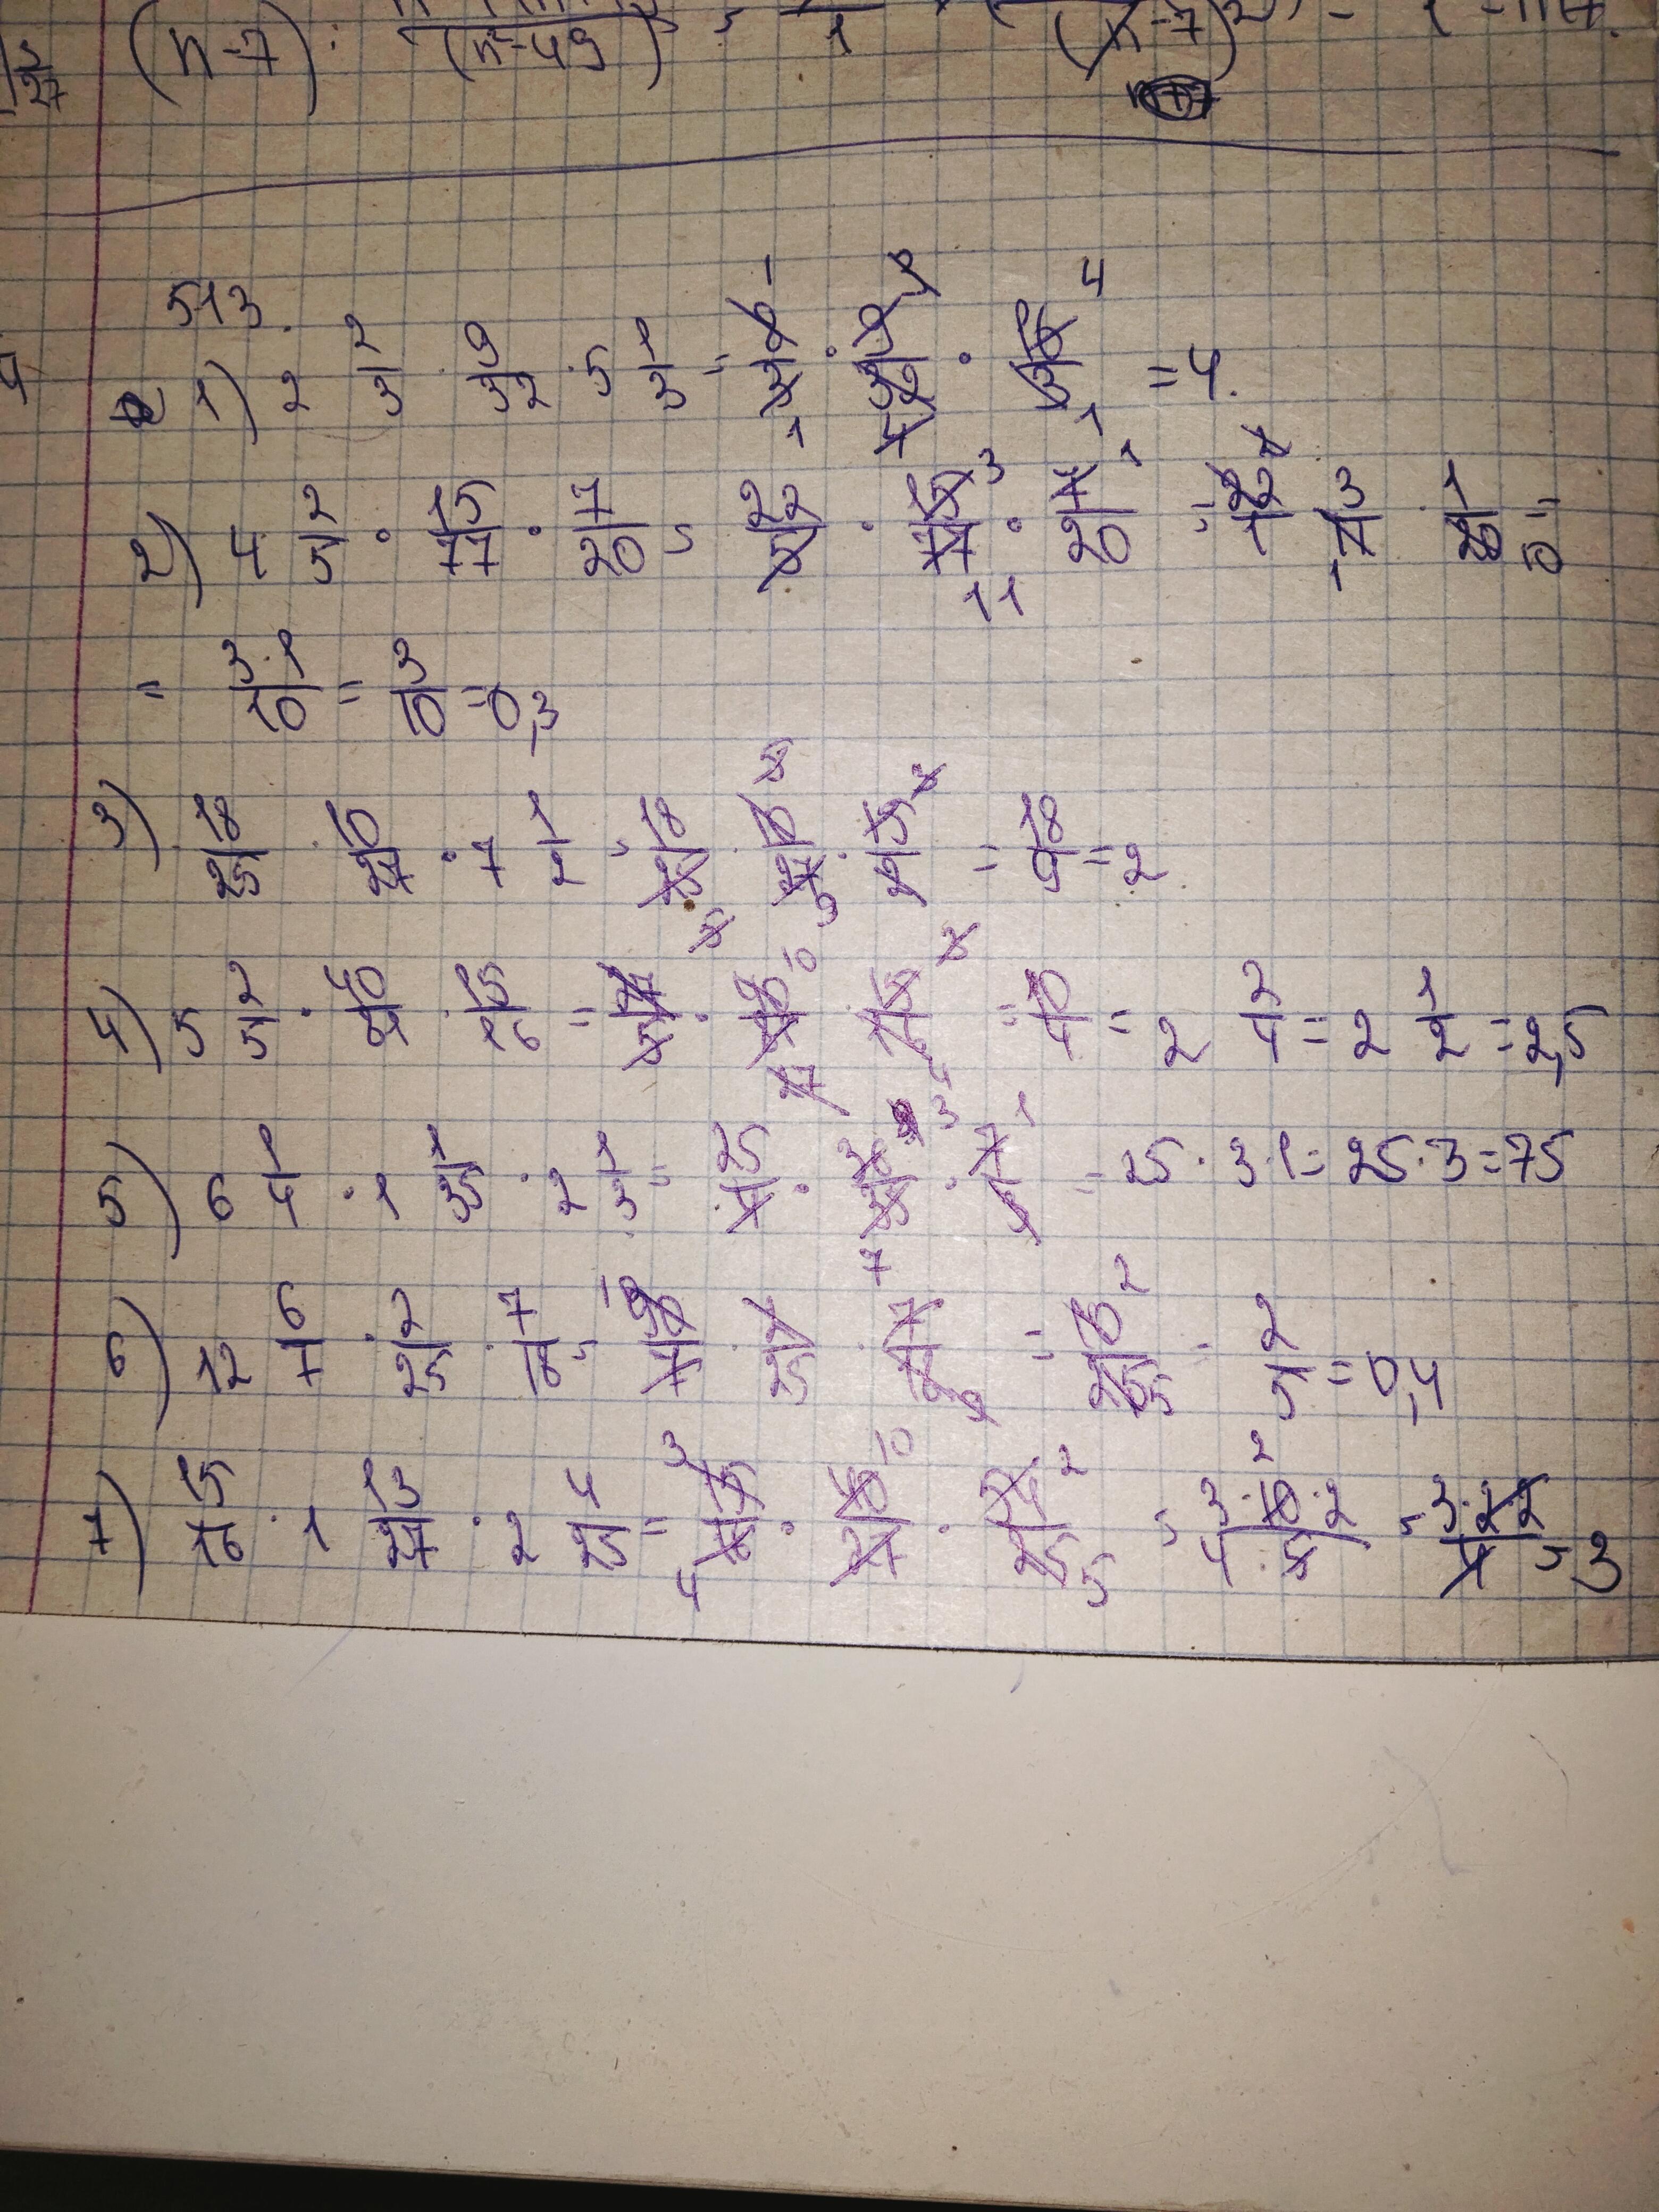 (n-7) : (n²-49)
513.
1) 2 2/3 · 9/32 · 5 1/3 = 8/3 · 9/32 · 16/3 = 4.
2) 4 2/5 · 15/77 · 7/20 = 22/5 · 15/77 · 7/20 = 22/1 · 3/11 · 1/20 =
= 3·1/10 = 3/10 = 0,3
3) 18/25 · 10/27 · 7 1/2 = 18/25 · 10/27 · 15/2 = 18/9 = 2
4) 5 2/5 · 40/81 · 15/16 = 27/5 · 40/81 · 15/16 = 10/4 = 2 2/4 = 2 1/2 = 2,5
5) 6 1/4 · 1 1/35 · 2 1/3 = 25/4 · 36/35 · 7/3 = 25 · 3 · 1 = 25 · 3 = 75
6) 12 6/7 · 2/25 · 7/18 = 90/7 · 2/25 · 7/18 = 10/25 = 2/5 = 0,4
7) 15/16 · 1 13/27 · 2 4/25 = 15/16 · 40/27 · 54/25 = 3·10·2/4·5 = 3·2·2/4 = 3